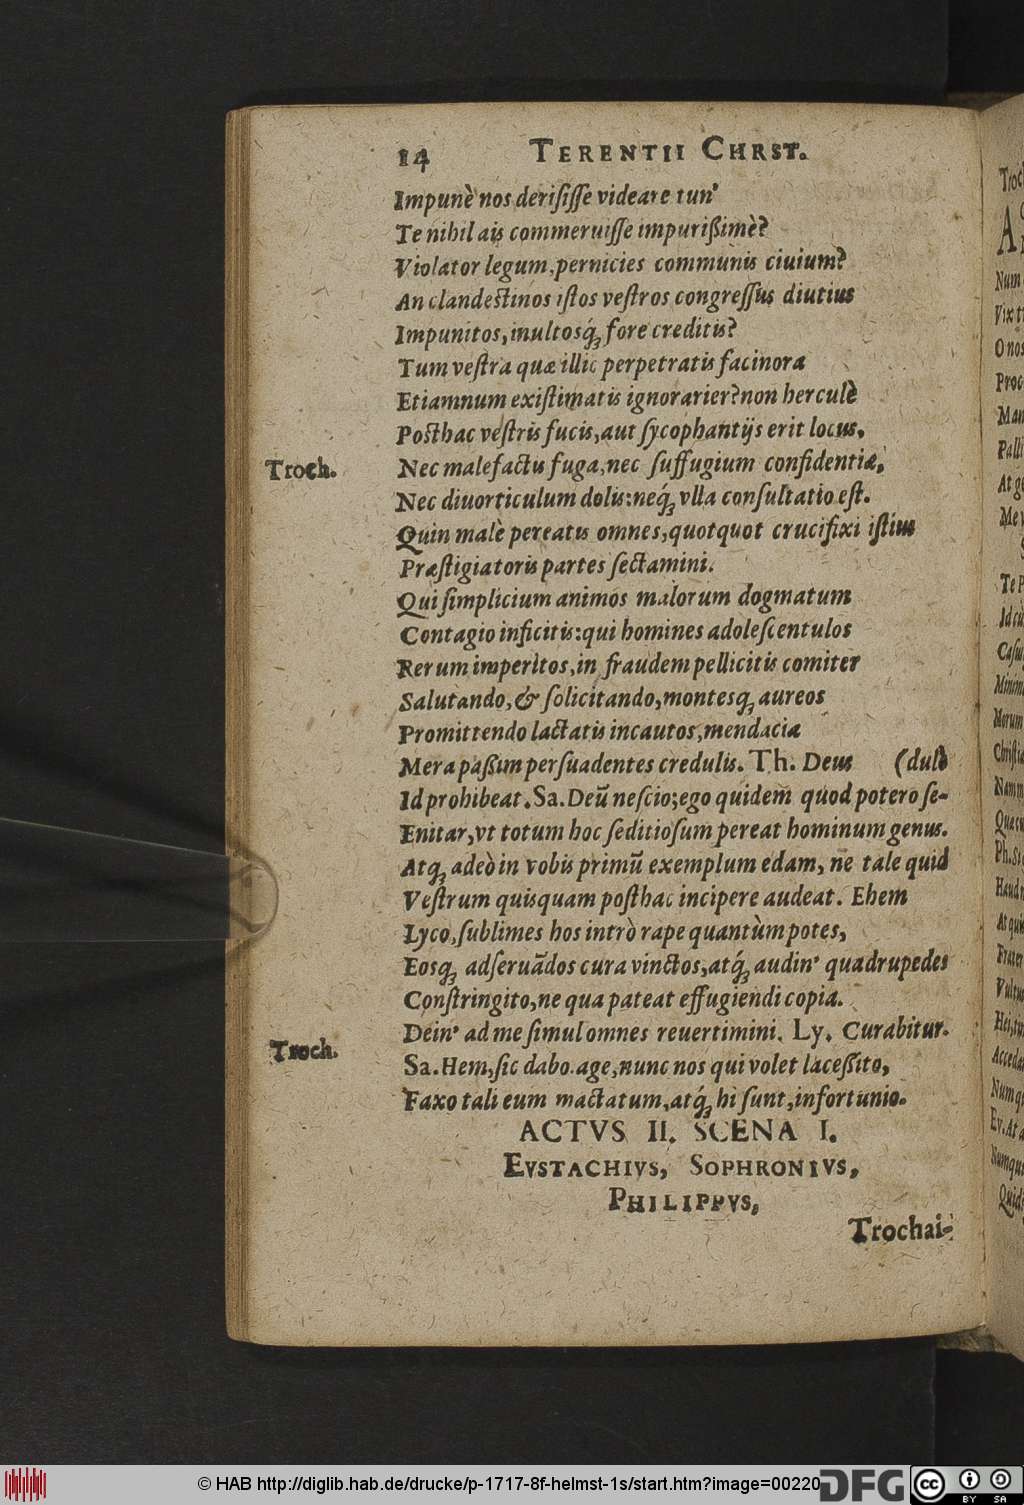 14 TERENTII CHRST.
Impunè nos deriſiſſe videare tun'
Te nihil ais commeruiſſe impurißimè?
Violator legum, pernicies communis ciuium?
An clandestinos iſtos veſtros congreſſus diutius
Impunitos, inultosq́ꝫ fore creditis?
Tum veſtra quæ illic perpetratis facinora
Etiamnum exiſtimatis ignorarier? non herculè
Posthac veſtris fucis, aut ſycophantijs erit locus,
Troch. Nec malefactis fuga, nec ſuffugium confidentiæ,
Nec diuorticulum dolis: neq́ꝫ vlla conſultatio eſt.
Quin malè pereatis omnes, quotquot crucifixi iſtius
Præſtigiatoris partes ſectamini.
Qui ſimplicium animos malorum dogmatum
Contagio inficitis: qui homines adoleſcentulos
Rerum imperitos, in fraudem pellicitis comiter
Salutando, & ſolicitando, montesqꝫ aureos
Promittendo lactatis incautos, mendacia
Mera paßim perſuadentes credulis. Th. Deus (dulò
Id prohibeat. Sa. Deū neſcio; ego quidem quod potero ſe-
Enitar, vt totum hoc ſeditioſum pereat hominum genus.
Atqꝫ adeò in vobis primū exemplum edam, ne tale quid
Veſtrum quisquam poſthac incipere audeat. Ehem
Lyco, ſublimes hos intrò rape quantùm potes,
Eosqꝫ adſeruādos cura vinctos, atq́ꝫ audin' quadrupedes
Conſtringito, ne qua pateat effugiendi copia.
Dein' ad me ſimul omnes reuertimini. Ly. Curabitur.
Troch. Sa. Hem, ſic dabo. age, nunc nos qui volet laceßito,
Faxo tali eum mactatum, atq́ꝫ hi ſunt, infortunio.
ACTVS II. SCENA I.
EVSTACHIVS, SOPHRONIVS,
PHILIPPVS,
Trochai-
© HAB http://diglib.hab.de/drucke/p-1717-8f-helmst-1s/start.htm?image=00220
DFG
cc BY SA